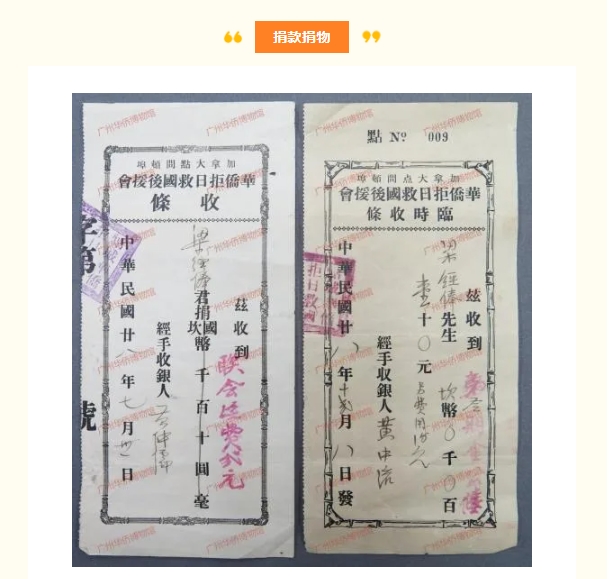 捐款捐物
加拿大點問頓埠
華僑拒日救國後援會
收條
茲收到
梁經偉君捐國坎幣 千 百 十 圓 毫
聯会経費弍元
經手收銀人
中華民國廿八年七月 日
字第 號
點 Nº 009
加拿大点問頓埠
華僑拒日救國後援會
臨時收條
茲收到
梁經偉先生 坎幣〇千〇百
壹十〇元
經手收銀人 黄中流
中華民國廿八年十 月八日發
广州华侨博物馆